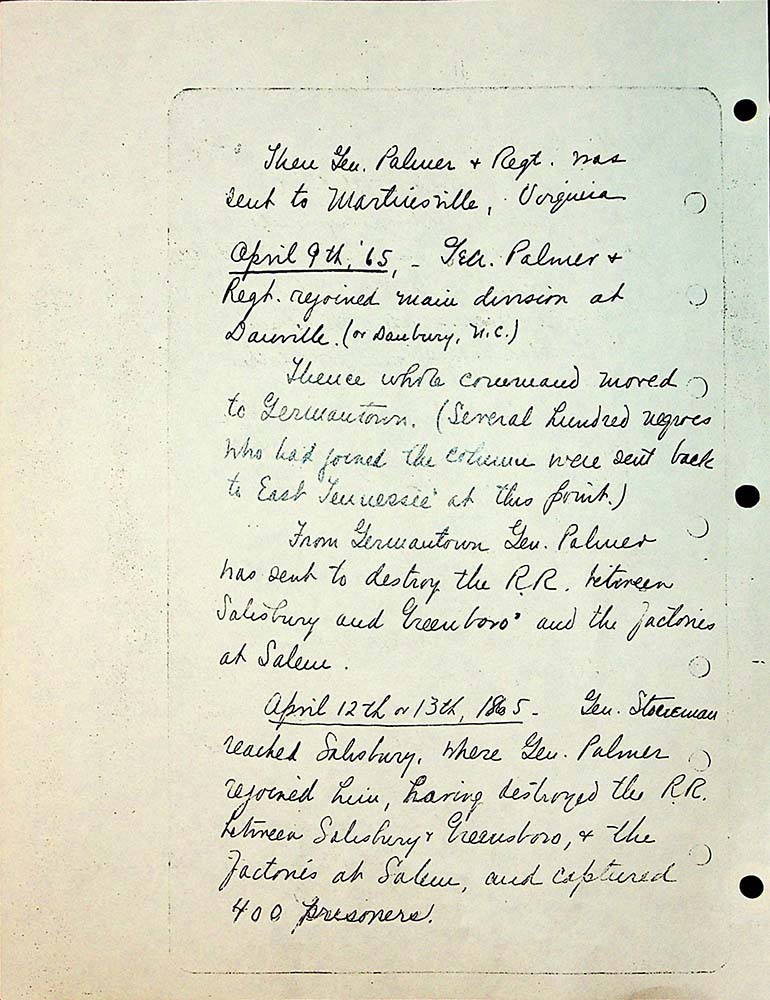 Then Gen. Palmer + Regt. was
sent to Martinsville, Virginia
April 9th, '65, - Gen. Palmer +
Regt. rejoined main division at
Danville. (or Danbury, N.C.)
Thence whole command moved
to Germantown. (Several hundred negroes
who had joined the column were sent back
to East Tennessee at this point.)
From Germantown Gen. Palmer
was sent to destroy the R.R. between
Salisbury and Greenboro' and the factories
at Salem.
April 12th or 13th, 1865 - Gen. Stoneman
reached Salisbury, where Gen. Palmer
rejoined him, having destroyed the R.R.
between Salisbury + Greensboro, + the
factories at Salem, and captured
400 prisoners.